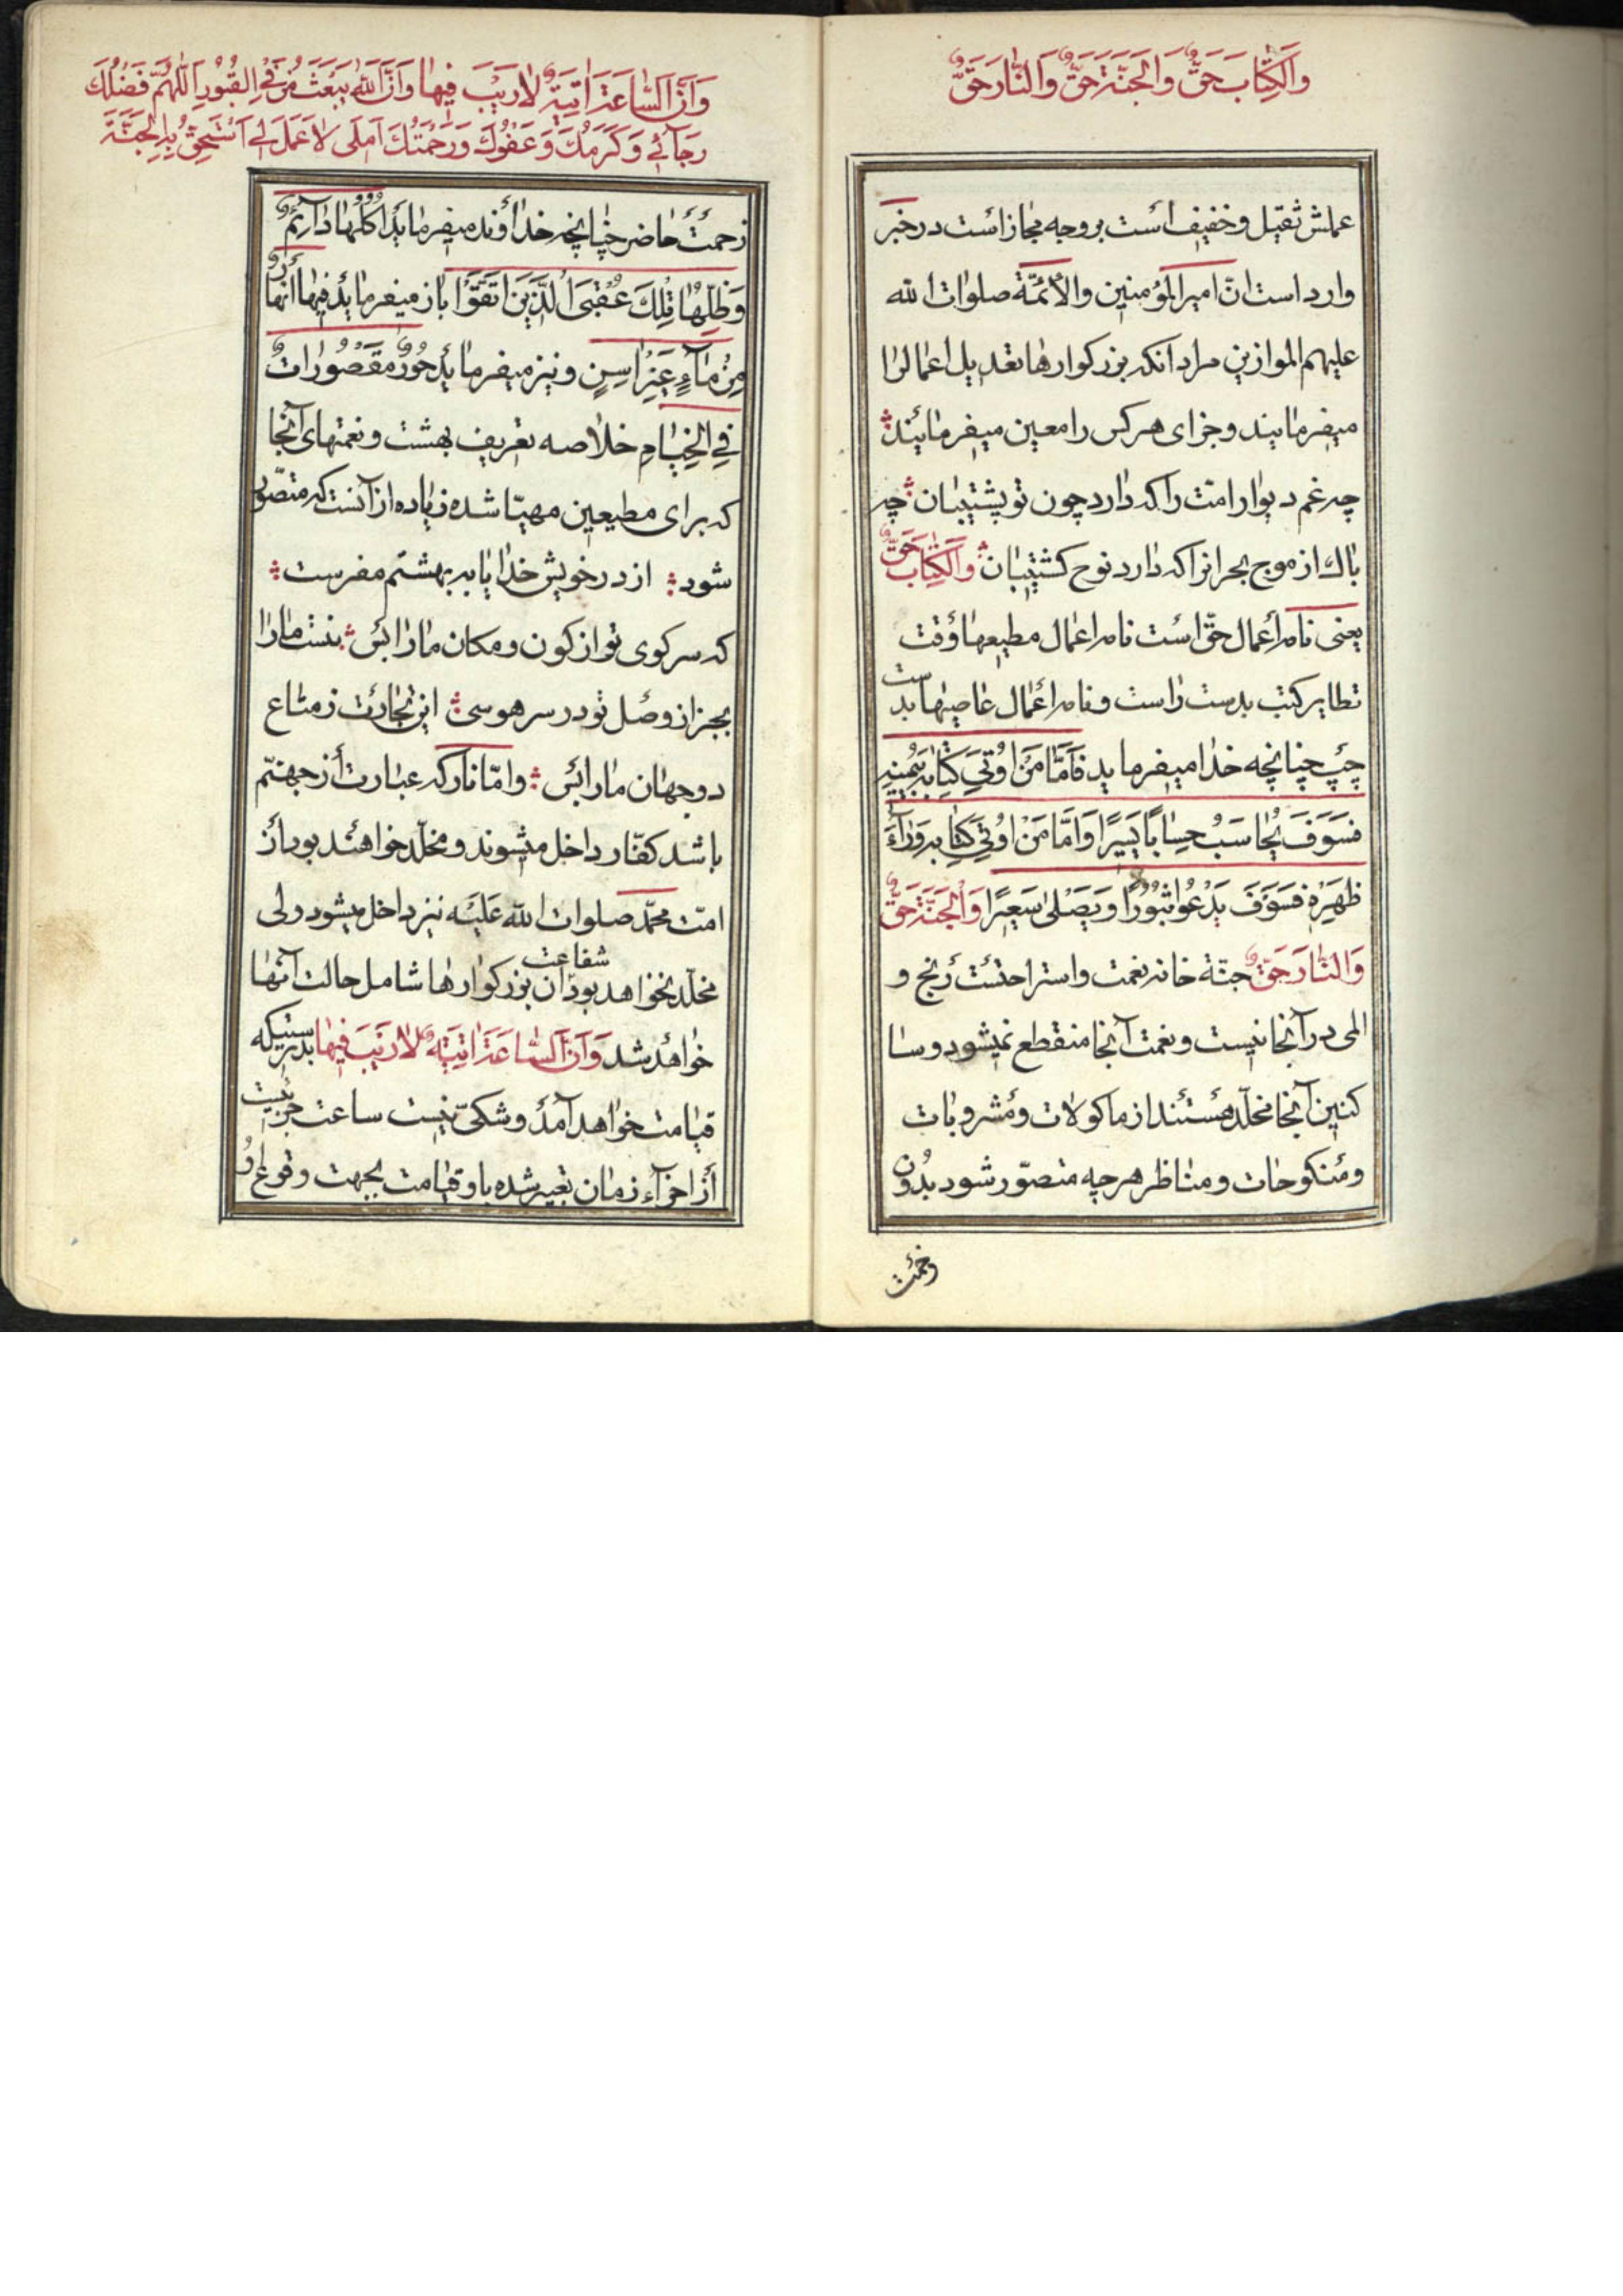 وَالْكِتَابَ حَقٌّ وَالْجَنَّةَ حَقٌّ وَالنَّارَ حَقٌّ
عملش ثقیل و خفیف أست بر وجه مجاز است در خبر
وارد است انّ امیر المؤمنین والائمّة صلوات الله
علیهم الموازین مراد آنکه بزرکوارها تعدیل اعمالرا
میفرمایند و جزای هر کس را معین میفرمایند
چه غم دیوار امت را که دارد چون تو پشتیبان چه
باك از موج بحر انرا که دارد نوح کشتیبان وَالْكِتَابَ حَقٌّ
یعنی نامه أعمال حقّ است نامه اعمال مطیعها وقت
تطایر کتب بدست راست و نامه أعمال عاصیها بدست
چپ چنانچه خدا میفرماید فَاَمَّا مَنْ اوُتِيَ كِتَابَهُ بِيَمِينِهِ
فَسَوَفَ يُحَاسَبُ حِسَابًا يَسِيرًا وَاَمَّا مَنْ اوُتِيَ كِتَابَهُ وَرَآءَ
ظَهَرِهِ فَسَوَفَ يَدْعُوا ثُبُورًا وَيَصْلىٰ سَعِيرًا وَالْجَنَّةَ حَقٌّ
وَالنَّارَ حَقٌّ جنّة خانه نعمت و استراحتست رنج و
المی در آنجا نیست و نعمت آنجا منقطع نمیشود و سا
کنین آنجا مخلّد هستند از ماکولات و مشروبات
و منکوحات و مناظر هر چه متصوّر شود بدُون
زحمت
وَاَنَّ السَّاعَةَ اتِيَةٌ لارَيْبَ فِيهَا وَاَنَّ اللّٰهَ يَبْعَثُ مَنْ فِي الْقُبُورِ اَللّٰهُمَّ فَضْلُكَ
رَجَآئِي وَكَرَمُكَ وَعَفْوُكَ وَرَحْمَتُكَ اَمَلَى لاٰ عَمَلَ لِي اَسْتَحِقُّ بِهِ الْجَنَّةَ
زحمت حاضر چنانچه خداوند میفرماید اُكُلُهَا دَآئِمٌ
وَظِلُّهَا تِلْكَ عُقْبَى الَّذِينَ اتَّقَوْا باز میفرماید فِيهَا اَنْهَارٌ
مِنْ مَآءٍ غَيْرِ اسِنٍ و نیز میفرماید حُورٌ مَقْصُورَاتٌ
فِي الْخِيَامِ خلاصه تعریف بهشت و نعمتهای آنجا
که برای مطیعین مهیّا شده زیاده از آنست که متصوّر
شود از در خویش خدایا به بهشتم مفرست
که سر کوی تو از کون و مکان مارا بس نیست مارا
بجز از وصل تو در سر هوسی این تجارت ز متاع
دو جهان مارا بس و امّا نار که عبارت از جهنّم
باشد کفّار داخل میشوند و مخلّد خواهند بود از
امّت محمّد صلوات الله علیه نیز داخل میشود ولی
مخلّد نخواهد بود شفاعت آن بزرکوارها شامل حالت آنها
خواهد شد وَاَنَّ السَّاعَةَ اتِيَةٌ لارَيْبَ فِيهَا بدرستیکه
قیامت خواهد آمد و شکیّ نیست ساعت جزئیست
از اجزآء زمان تعبیر شده باو قیامت بجهت وقوع او